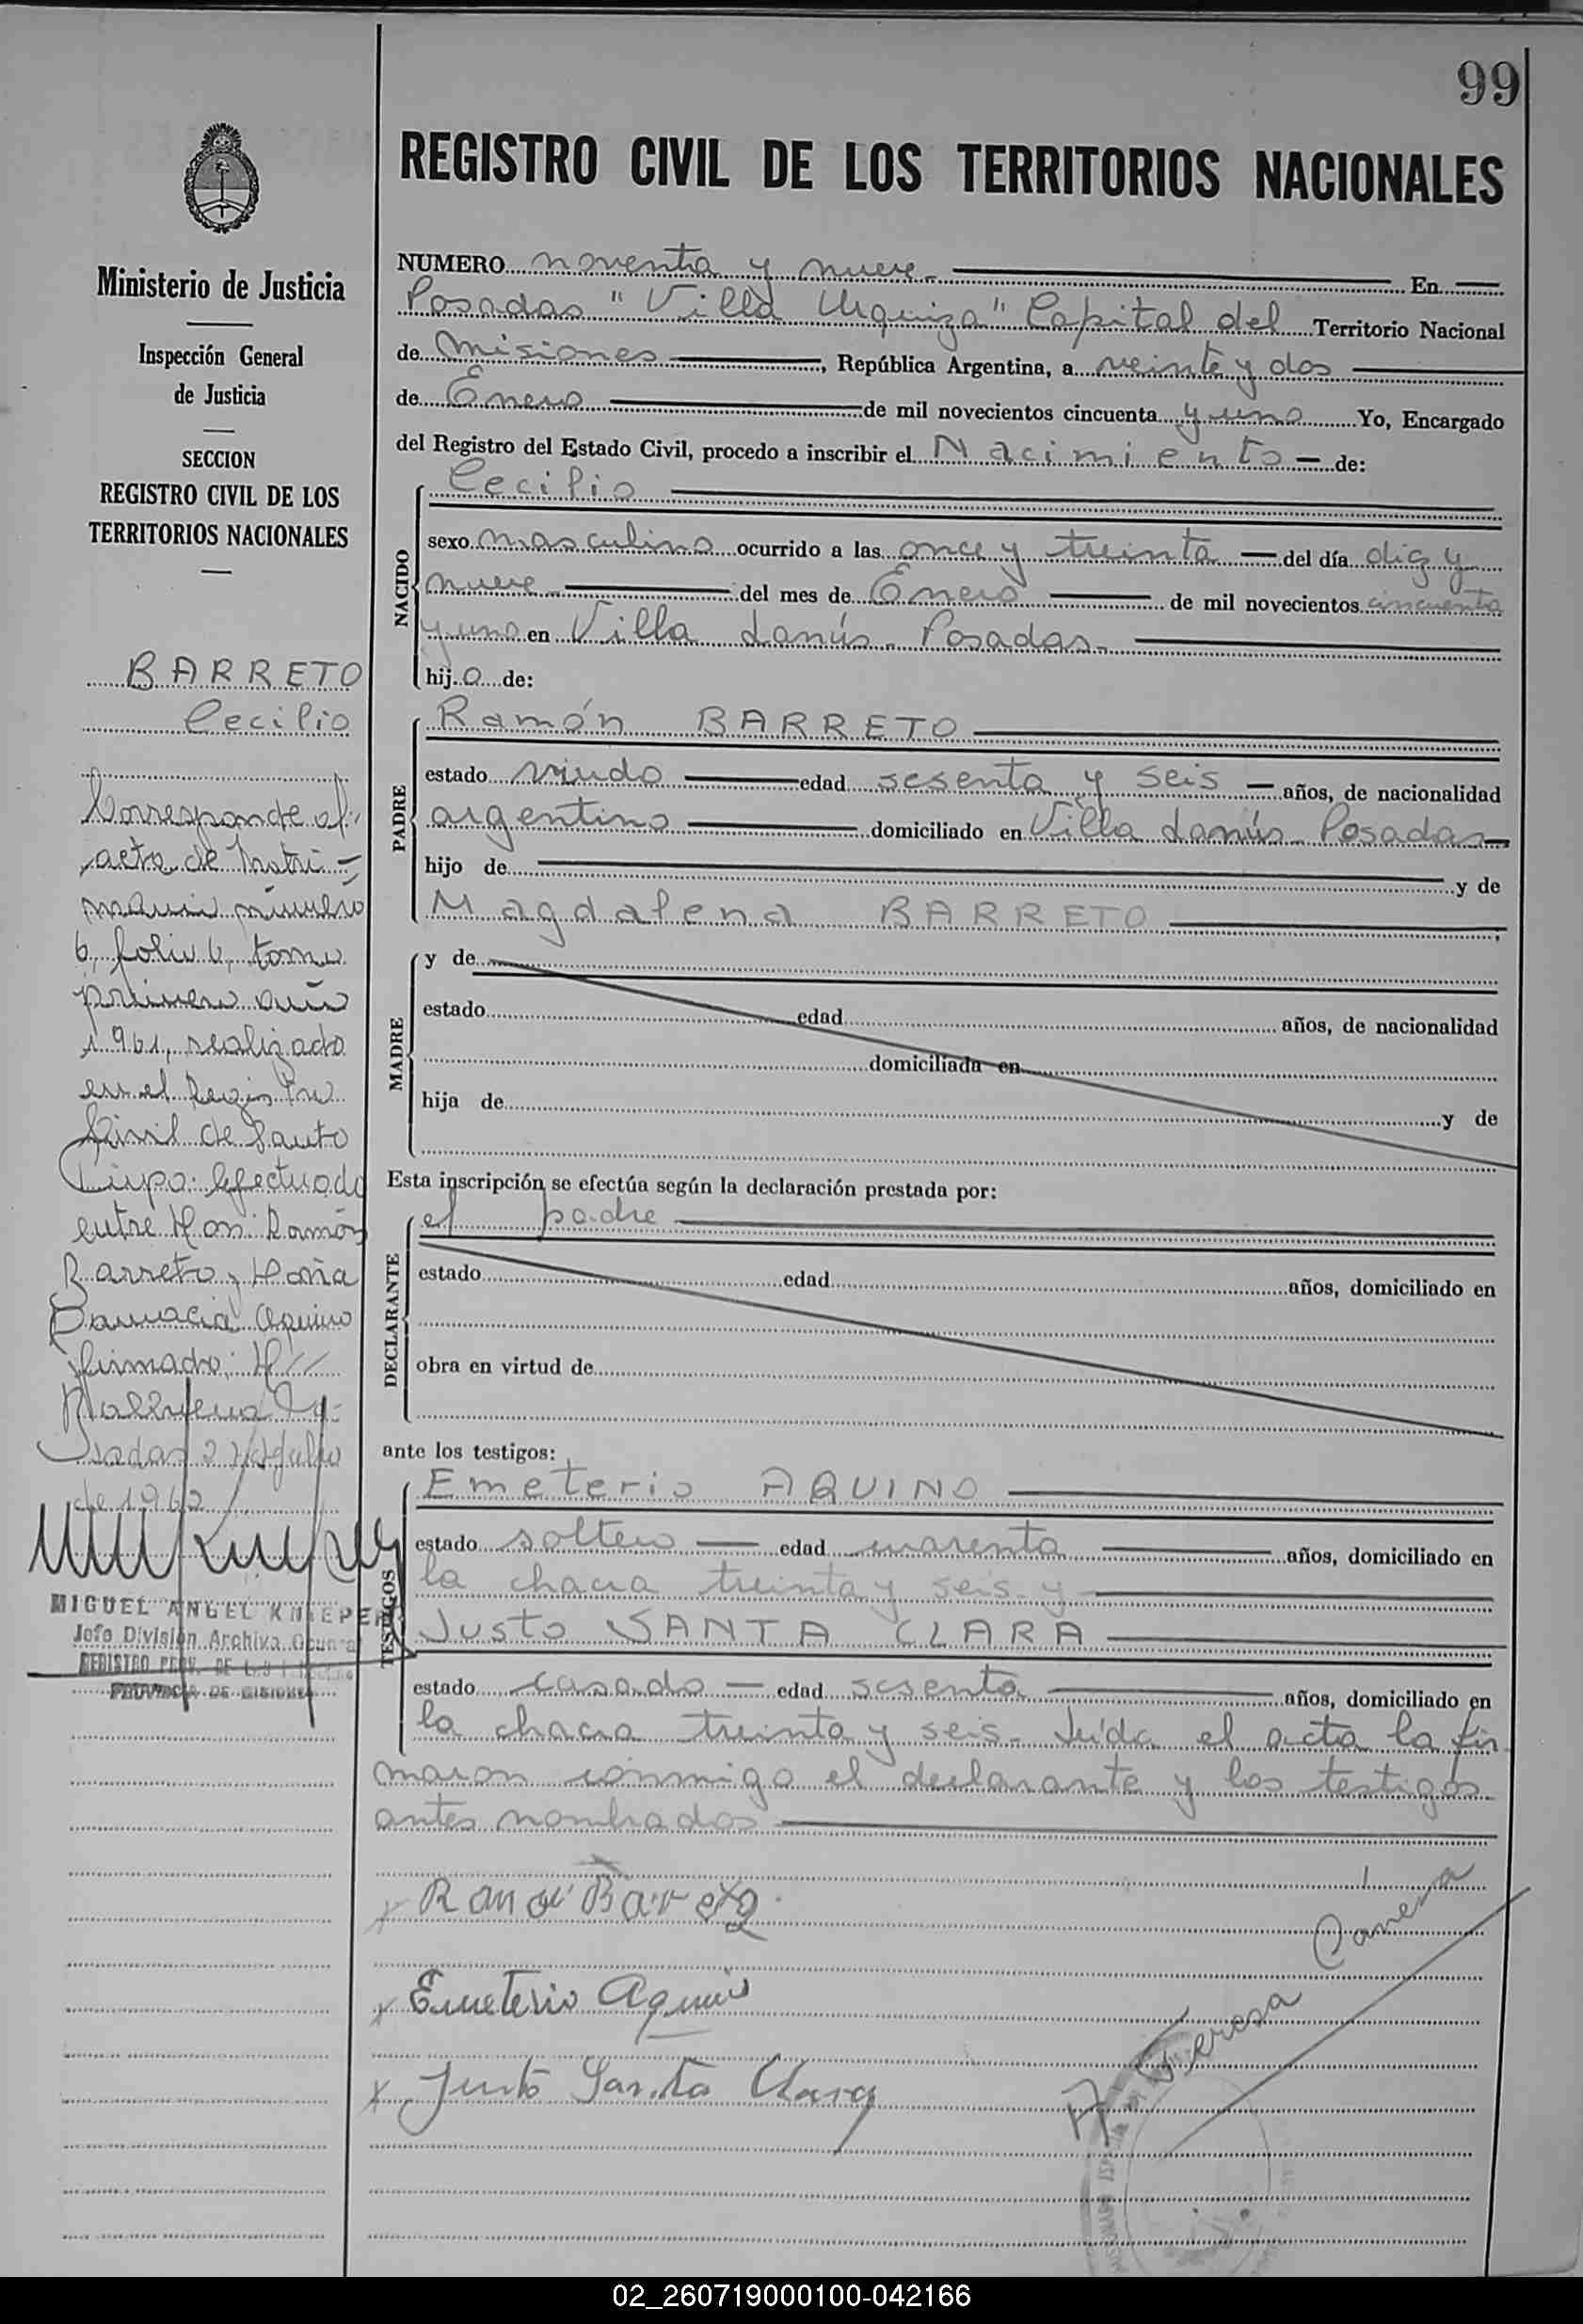 99
REGISTRO CIVIL DE LOS TERRITORIOS NACIONALES
Ministerio de Justicia
Inspección General
de Justicia
SECCION
REGISTRO CIVIL DE LOS
TERRITORIOS NACIONALES
BARRETO
Cecilio
Corresponde al
acta de Matri-
monio número
6, folio 6, tomo
primero año
1961, realizado
en el Registro
Civil de Santo
Pipó. Efectuado
entre Don Ramón
Barreto y Doña
Damacia Aquino
firmado:
de 1962
MIGUEL ANGEL KNIEPER
Jefe División Archivo General
REGISTRO PROV. DE
PROVINCIA DE MISIONES
NUMERO noventa y nueve.- En
Posadas "Villa Urquiza" Capital del Territorio Nacional
de Misiones, República Argentina, a veinte y dos
de Enero de mil novecientos cincuenta y uno Yo, Encargado
del Registro del Estado Civil, procedo a inscribir el Nacimiento de:
NACIDO
Cecilio
sexo masculino ocurrido a las once y treinta del día diez y
nueve del mes de Enero de mil novecientos cincuenta
y uno en Villa Lanús - Posadas.-
hijo de:
PADRE
Ramón BARRETO
estado viudo edad sesenta y seis años, de nacionalidad
argentino domiciliado en Villa Lanús - Posadas
hijo de y de
Magdalena BARRETO
MADRE
y de
estado edad años, de nacionalidad
domiciliada en
hija de y de
Esta inscripción se efectúa según la declaración prestada por:
DECLARANTE
el padre
estado edad años, domiciliado en
obra en virtud de
ante los testigos:
TESTIGOS
Emeterio AQUINO
estado soltero edad cuarenta años, domiciliado en
la chacra treinta y seis y
Justo SANTA CLARA
estado casado edad sesenta años, domiciliado en
la chacra treinta y seis.- Leída el acta la fir
maron conmigo el declarante y los testigos
antes nombrados
x Ramón Barreto
x Emeterio Aquino
x Justo Santa Clara
Teresa Canera
02_260719000100-042166